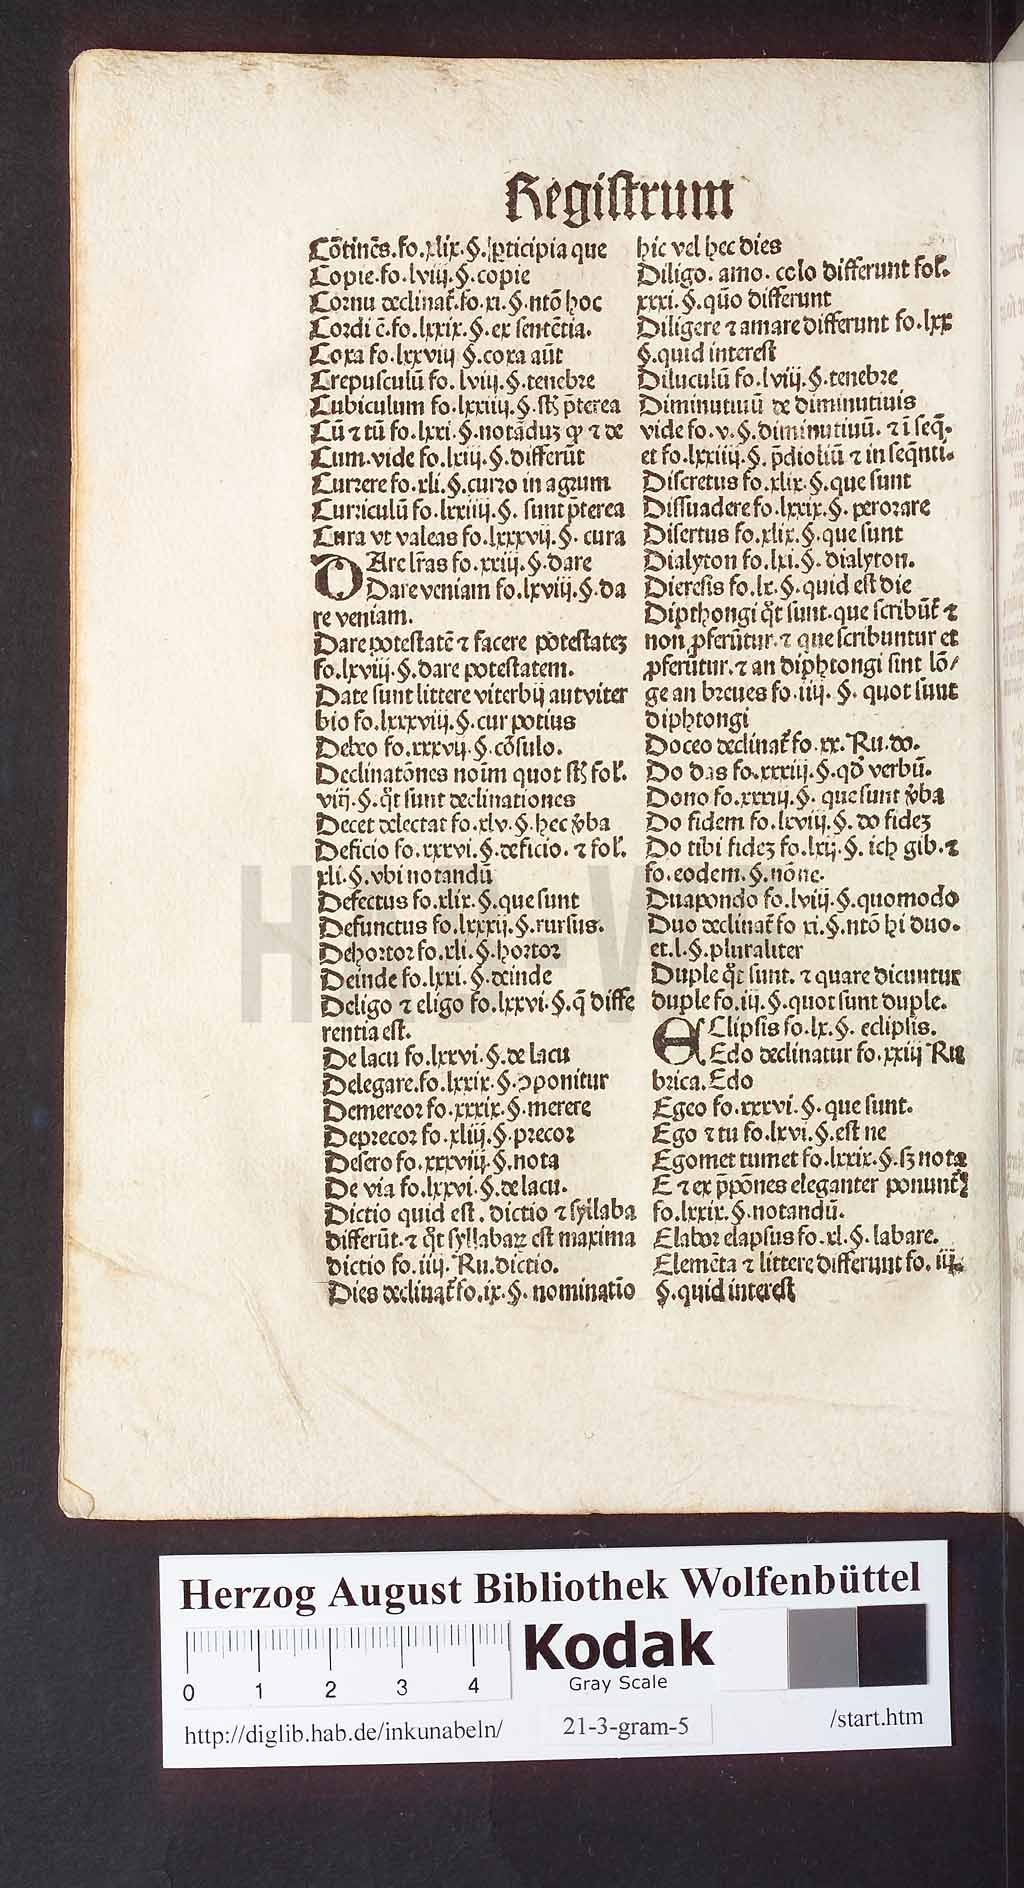 Registrum
Cōtinēs.fo.xlix.§.ꝑticipia que
Copie.fo.lviij.§.copie
Cornu declinat̄.fo.xi.§.ntō hoc
Cordi ē.fo.lxxix.§.ex sentētia.
Coxa fo.lxxviij §.coxa aūt
Crepusculū fo.lviij.§.tenebre
Cubiculum fo.lxxiiij.§.st̄ p̄terea
Cū ⁊ tū fo.lxxi.§.notāduꝫ ꝙ ⁊ de
Cum.vide fo.lxiij.§.differūt
Currere fo.xli.§.curro in agrum
Curriculū fo.lxxiiij.§. sunt p̄terea
Cura vt valeas fo.lxxxvij.§. cura
DAre lr̄as fo.xxiij.§.dare
Dare veniam fo.lxviij.§.da
re veniam.
Dare potestatē ⁊ facere potestateꝫ
fo.lxviij.§.dare potestatem.
Date sunt littere viterbij aut viter
bio fo.lxxxviij.§.cur potius
Debeo fo.xxxvij.§.cōsulo.
Declinatōnes noim quot st̄ fol̄.
viij.§.q̊t sunt declinationes
Decet delectat fo.xlv.§.hec v̄ba
Deficio fo.xxxvi.§.deficio.⁊ fol̄.
xli.§.vbi notandū
Defectus fo.xlix.§.que sunt
Defunctus fo.lxxxij.§.rursus.
Dehortor fo.xli.§.hortor
Deinde fo.lxxi.§.deinde
Deligo ⁊ eligo fo.lxxvi.§.q̄ diffe
rentia est.
De lacu fo.lxxvi.§.de lacu
Delegare.fo.lxxix.§.ꝯponitur
Demereor fo.xxxix.§.merere
Deprecor fo.xliij.§.precor
Desero fo.xxxviij.§.nota
De via fo.lxxvi.§.de lacu.
Dictio quid est.dictio ⁊ syllaba
differūt.⁊ q̊t syllabaꝝ est maxima
dictio fo.iiij.Ru.dictio.
Dies declinat̄ fo.ix.§.nominatīo
hic vel hec dies
Diligo.amo.colo differunt fol̄.
xxxi.§.quō differunt
Diligere ⁊ amare differunt fo.lxx
§.quid interest
Diluculū fo.lviij.§.tenebre
Diminutiuū de diminutiuis
vide fo.v.§.diminutiuū.⁊ ī seq̄.
et fo.lxxiiij.§.p̄dioliū ⁊ in seq̄nti.
Discretus fo.xlix.§.que sunt
Dissuadere fo.lxxix.§.perorare
Disertus fo.xlix.§.que sunt
Dialyton fo.lxi.§.dialyton.
Dieresis fo.lx.§.quid est die
Dipthongi q̊t sunt.que scribūt̄ ⁊
non ꝓferūtur.⁊ que scribuntur et
ꝓferūtur.⁊ an diphtongi sint lō/
ge an breues fo.iiij.§.quot sunt
diphtongi
Doceo declinat̄ fo.xx.Ru.do.
Do das fo.xxxiij.§.qd̄ verbū.
Dono fo.xxxiij.§.que sunt v̄ba
Do fidem fo.lxviij.§.do fideꝫ
Do tibi fideꝫ fo.lxij.§.ich gib.⁊
fo.eodem.§.nōne.
Duapondo fo.lviij.§.quomodo
Duo declinat̄ fo xi.§.ntō hi duo.
et.l.§.pluraliter
Duple q̊t sunt.⁊ quare dicuntur
duple fo.iij.§.quot sunt duple.
EClipsis fo.lx.§.eclipsis.
Edo declinatur fo.xxiij Ru
brica.Edo
Egeo fo.xxxvi.§.que sunt.
Ego ⁊ tu fo.lxvi.§.est ne
Egomet tumet fo.lxxix.§.sꝫ nota
E ⁊ ex p̄pōnes eleganter ponunt̄
fo.lxxix.§.notandū.
Elabor elapsus fo.xl.§.labare.
Elemēta ⁊ littere differunt fo.iij.
§.quid interest
Herzog August Bibliothek Wolfenbüttel
0 1 2 3 4
Kodak
Gray Scale
http://diglib.hab.de/inkunabeln/ 21-3-gram-5 /start.htm